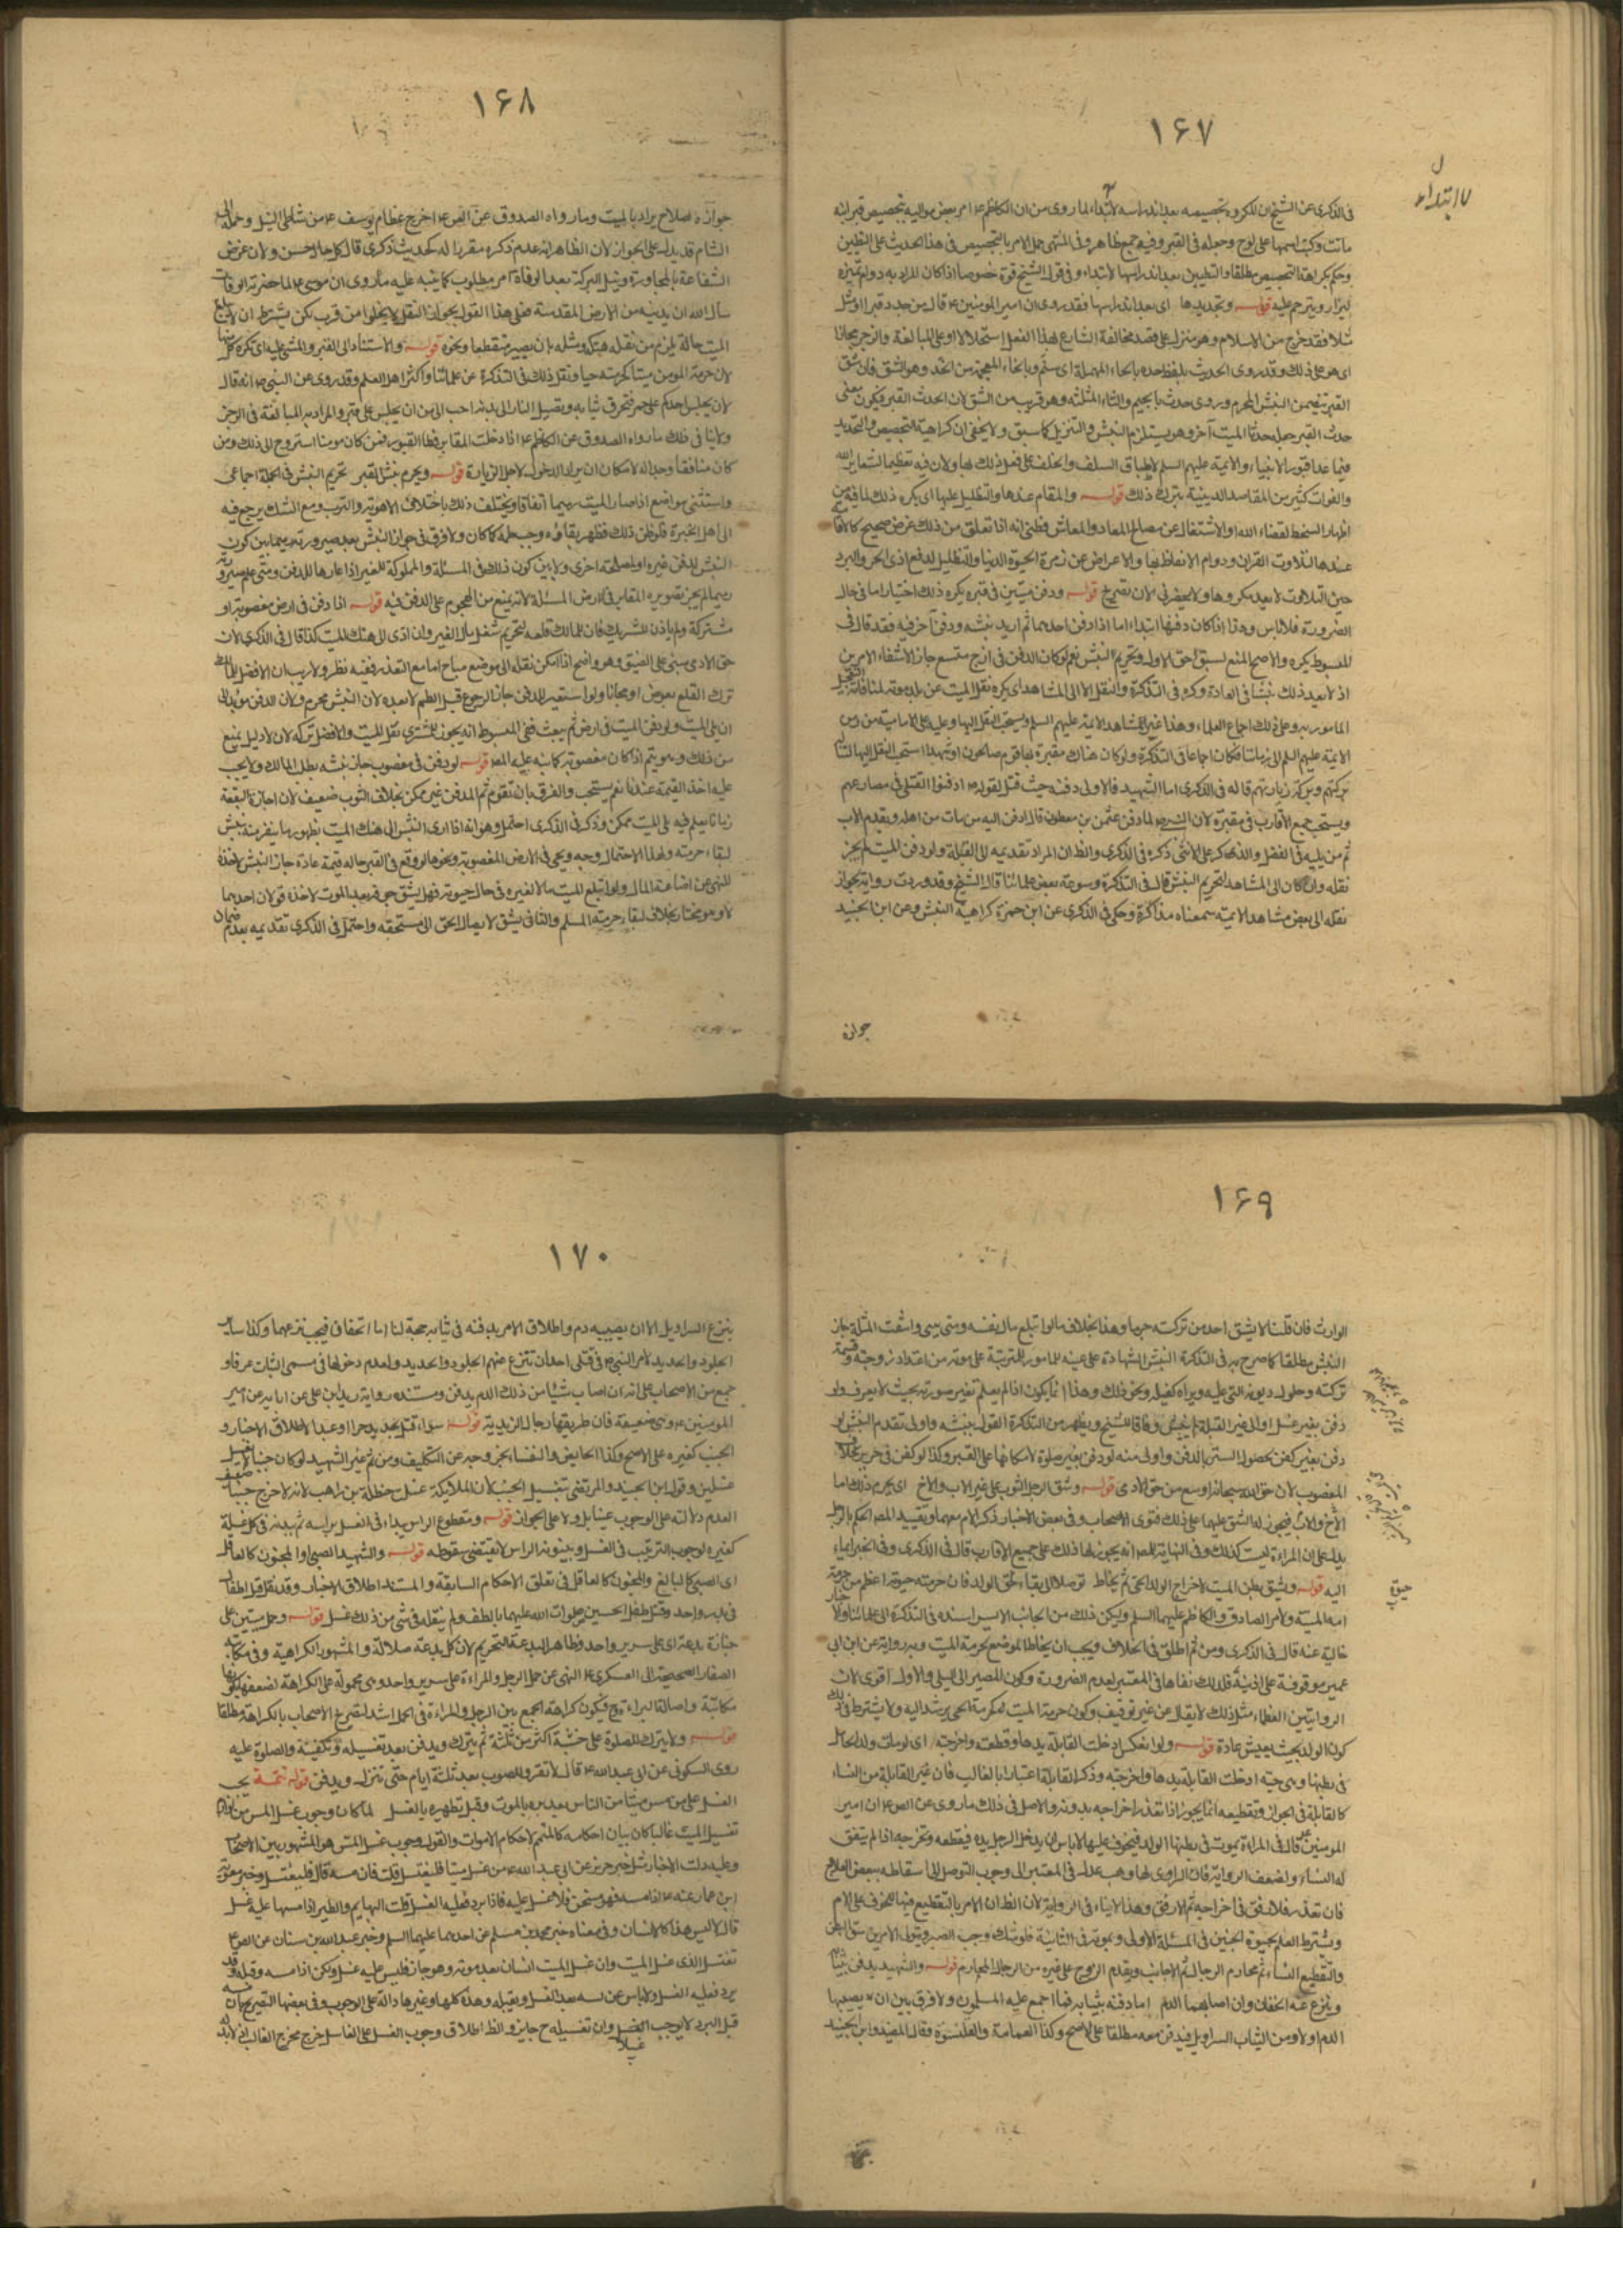 ١۶٧
لا ابتداء
فى الذكرى عن الشيخ ان المكروه تجصيصه بعد اندراسه لا ابتداء لما روى من ان الكاظم ع امر بعض مواليه بتجصيص قبر ابنة
ماتت وكتب اسمها على لوح وجعله فى القبر وفيه جمع ظاهر وفى المنتهى حمل الامر بالتجصيص فى هذا الحديث على التطيين
وحكم بكراهة التجصيص مطلقا والتطيين بعد اندراسها لا ابتداء وفى قول الشيخ قوة خصوصا اذا كان المراد به دوام تميزه
ليزار ويترحم عليه قوله وتجديدها اى بعد اندراسها فقد روى ان امير المومنين ع قال من جدد قبرا او مثل
مثلا فقد خرج من الاسلام وهو منزل على قصد مخالفة الشارع لهذا الفعل استحلالا او على المبالغة والزجر مجازا
اى هو على ذلك وقد روى الحديث بلفظ حدد بالحاء المهملة اى سنم وبالخاء المعجمة من الخد وهو الشق فان شق
القبر يتضمن النبش المحرم وروى جدث بالجيم والثاء المثلثة وهو قريب من الشق لان الجدث القبر فيكون معنى
جدث القبر جعله جدثا لميت آخر وهو يستلزم النبش والتنزيل كما سبق ولا يخفى ان كراهية التجصيص والتجديد
فيما عدا قبور الانبياء والائمة عليهم السلم لاطباق السلف والخلف على فعل ذلك بها ولان فيه تعظيما لشعاير الله
ولفوات كثير من المقاصد الدينية بترك ذلك قوله والمقام عندها والتظليل عليها اى يكره ذلك لما فيه من
اظهار السخط لقضاء الله او الاشتغال عن مصالح المعاد والمعاش فظنى انه اذا تعلق من ذلك غرض صحيح كالاقامة
عندها لتلاوت القران ودوام الاتعاظ بها والاعراض عن زهرة الحيوة الدنيا والتظليل لدفع اذى الحر والبرد
حين التلاوت لا يعد مكروها
قوله ودفن ميتين فى قبر يكره ذلك اختيارا اما فى حال
الضرورة فلا باس وهذا اذا كان دفنها ابتداء اما اذا دفن احدهما ثم اريد نبشه ودفن آخر فيه فقد قال فى
المبسوط يكره والاصح المنع لسبق حق الاول وتحريم النبش نعم لو كان الدفن فى ازج متسع جاز لانتفاء الامرين
اذ لا يعد ذلك نبشا فى العادة وكره فى التذكرة والنقل الا الى المشاهد اى يكره نقل الميت عن بلد موته لمنافاته التعجيل
المامور به وعلى ذلك اجماع العلماء وهذا غير المشاهد لائمة عليهم السلم ويستحب النقل اليها وعليه عمل الامامية من زمن
الائمة عليهم السلم الى زماننا فكان اجماعا فى التذكرة ولو كان هناك مقبرة بها قوم صالحون او شهداء استحب النقل اليها لتناله
بركتهم وبركة زيارتهم قاله فى الذكرى اما الشهيد فالاولى دفنه حيث قتل لقوله ص ادفنوا القتلى فى مصارعهم
ويستحب جمع الاقارب فى مقبرة لان النبى ص لما دفن عثمن بن مظعون قال ادفن اليه من مات من اهله ويقدم الاب
ثم من يليه فى الفضل والذكر على الانثى ذكره فى الذكرى والظ ان المراد تقديمه الى القبلة ولو دفن الميت لم يجز
نقله وان كان الى المشاهد لتحريم النبش قال فى التذكرة وسوغه بعض علمائنا قال الشيخ وقد وردت رواية بجواز
نقله الى بعض مشاهد الائمة سمعناها مذاكرة وحكى فى الذكرى عن ابن حمزة كراهية النبش وعن ابن الجنيد
جوازه
١۶٨
جوازه لصلاح يراد بالميت وما رواه الصدوق عن الص ع اخرج عظام يوسف ع من شاطى النيل وحمله الى
الشام قد يدل على الجواز لان الظاهر انه عدم ذكره مقررا له كحديث ذكرى قال كل حال حسن ولان غرض
الشفاعة بالمجاورة ونيل البركة بعد الوفاة امر مطلوب كما ينبه عليه ما روى ان موسى ع لما حضرته الوفات
سأل الله ان يدنيه من الارض المقدسة فعلى هذا القول بجواز النقل
من قرب لكن يشترط ان لا يبلغ
الميت حالة يلزم من نقله هتكه ومثله بان يصير متقطعا ونحوه قوله والاستناد الى القبر والمشى عليه اى يكره كل منهما
لان حرمة المومن ميتا كحرمته حيا ونقل ذلك فى التذكرة عن علمائنا واكثر اهل العلم وقد روى عن النبى ص انه قال
لان يجلس احدكم على جمر فتحرق ثيابه وتصل النار الى بدنه احب الى من ان يجلس على قبر والمراد به المبالغة فى الزجر
ولا ينافى ذلك ما رواه الصدوق عن الكاظم ع اذا دخلت المقابر فطا القبور فمن كان مومنا استروح الى ذلك ومن
كان منافقا وجد المه لامكان ان يراد الدخول لاجل الزيارة قوله ويحرم نبش القبر تحريم النبش فى الجملة اجماعى
واستثنى مواضع اذا صار الميت رميما اتفاقا ويختلف ذلك باختلاف الاهوية والترب ومع الشك يرجع فيه
الى اهل الخبرة فلو ظن ذلك فظهر بقاؤه وجب طمه كما كان ولا فرق فى جواز النبش بعد صيرورته رميما بين كون
النبش لدفن غيره او لمصلحة اخرى ولا بين كون ذلك فى المسبلة والمملوكة للغير اذا عارها للدفن ومتى علم صيرورته
رميما لم يجز تصويره المقابر فى الارض المسبلة لانه يمنع من الهجوم على الدفن فيه قوله اذا دفن فى ارض مغصوبة او
مشتركة ولم ياذن الشريك فان للمالك قلعه لتحريم شغل مال الغير وان ادى الى هتك الميت كذا قال فى الذكرى لان
حق الادمى مبنى على الضيق وهو واضح اذا امكن نقله الى موضع مباح اما مع التعذر ففيه نظر ولا ريب ان الافضل للمالك
ترك القلع بعوض او مجانا ولو استعير للدفن جاز الرجوع قبل الطم لا بعده لان النبش محرم ولان الدفن مؤبد الى
ان يبلى الميت ولو دفن الميت فى ارض ثم بيعت ففى المبسوط انه يجوز للمشترى نقل الميت والافضل تركه لان لا دليل يمنع
من ذلك وهو يتم اذا كان مغصوبة كما نبه عليه المص قوله لو دفن فى مغصوب جاز نبشه بطلب المالك ولا يجب
عليه اخذ القيمة عندنا نعم يستحب والفرق بان تقويم ثم المدفن غير ممكن بخلاف الثوب ضعيف لان اجارة البقعة
زمانا يعلم فيه بلى الميت ممكن وذكر فى الذكرى احتمل وهو انه اذا ادى النبش الى هتك الميت بظهور ما ينفر منه نبش
لبقاء حرمته ولهذا الاحتمال وجه ويجى فى الارض المغصوبة ونحوها لو وقع فى القبر ما له قيمة عادة جاز النبش لاخذه
للنهى عن اضاعة المال ولو ابتلع الميت مالا لغيره فى حال حيوته فهل يشق جوفه بعد الموت لاخذه قولان احدهما
لا وهو مختار بخلاف لبقاء حرمة المسلم والثانى يشق لايصال الحق الى مستحقه واحتمل فى الذكرى تقديمه بعدم ضمان
١۶٩
الوارث فان قلنا لا يشق احد من تركته
وهذا بخلاف ما لو ابتلع مال نفسه ومتى بلى وانتفت المثلة جاز
النبش مطلقا كما صرح به فى التذكرة النبش للشهادة على عينه للامور المترتبة على موته من اعتداد زوجته وقسمة
تركته وحلول ديونه التى عليه وبراءة كفيله ونحو ذلك وهذا انما يكون اذا لم يعلم تغير صورته بحيث لا يعرف ولو
دفن بغير غسل او الى غير القبلة لم ينبش وفاقا للشيخ ويظهر من التذكرة القول بنبشه واولى بعدم النبش لو
دفن بغير كفن لحصول الستر بالدفن واولى منه لو دفن بغير صلوة لامكانها على القبر وكذا لو كفن فى حرير بخلاف
المغصوب لان حق الله سبحانه اوسع من حق الادمى قوله وشق الرجل الثوب على غير الاب والاخ اى يحرم ذلك اما
الاخ والاب فيجوز له الشق عليهما على ذلك فتوى الاصحاب وفى بعض الاخبار ذكر الام معهما وتقييد المص الحكم بالرجل
يدل على ان المراءة ليست كذلك وفى النهاية للمص انه يجوز لها ذلك على جميع الاقارب قال فى الذكرى وفى الخبر ايماء
اليه قوله وشق بطن الميت لاخراج الولد الحى ثم يخاط توصلا الى بقاء حق الولد فان حرمته حيوته اعظم من حرمة
امه الميتة ولامر الصادق والكاظم عليهما السلم ويكن ذلك من الجانب الايسر اسنده فى التذكرة الى علمائنا والاخبار
خالية عنه قال فى الذكرى ومن ثم اطلق فى الخلاف ويجب ان يخاط الموضع لحرمة الميت وبه رواية عن ابن ابى
عمير موقوفة على اذينة فلذلك نفاها فى المعتبر لعدم الضرورة وكون المصير الى البلى والاول اقوى لان
الروايتين العظماء مثل ذلك لا يقال عن غير توقيف وكون حرمة الميت كحرمة الحى يرشد اليه ولا يشترط فى ذلك
كون الولد بحيث يعيش عادة قوله ولو انعكس ادخلت القابلة يدها وقطعته واخرجته اى لو مات ولد الحامل
فى بطنها وهى حية ادخلت القابلة يدها واخرجته وذكر القابلة اعتبارا بالغالب فان غير القابلة من النساء
كالقابلة فى الجواز وتقطيعه انما يجوز اذا تعذر اخراجه بدونه والاصل فى ذلك ما روى عن الص ع ان امير
المومنين ع قال فى المراءة يموت فى بطنها الولد فيتخوف عليها لا باس ان يدخل الرجل يده فيقطعه ويخرجه اذا لم يتفق
له النساء ولضعف الرواية فان الراوى لها وهب عدل فى المعتبر الى وجوب التوصل الى اسقاطه ببعض العلاج
فان تعذر فالارفق فى اخراجه ثم الارفق وهذا لا ينافى الرواية لان الظ ان الامر بالتقطيع فيها للخوف على الام
ويشترط العلم بحيوة الجنين فى المسئلة الاولى وبموته فى الثانية فلو شك وجب الصبر ويتولى الامرين شق البطن
والتقطيع النساء ثم محارم الرجال ثم الاجانب ويقدم الزوج على غيره من الرجال المحارم قوله والشهيد يدفن بثيابه
وينزع عنه الخفان وان اصابهما الدم اما دفنه بثيابه فما اجمع عليه المسلمون ولا فرق بين ان يصيبها
الدم او لا ومن الثياب السراويل فيدفن معه مطلقا على الاصح وكذا العمامة والقلنسوة وقال المفيد وابن الجنيد
١٧٠
ينزع السراويل الا ان يصيبه دم واطلاق الامر بدفنه فى ثيابه حجة لنا اما الخفان فينزعهما وكذا ساير
الجلود والحديد لامر النبى ص فى قتلى احد ان تنزع عنهم الجلود والحديد ولعدم دخولها فى مسمى الثياب عرفا و
جمع من الاصحاب على انه ان اصاب شيئا من ذلك الدم يدفن ومستنده رواية زيد ابن على عن ابايه عن امير
المومنين ع وهى ضعيفة فان طريقها رجال الزيدية قوله سواء قتل بحديد جرا او عبد الاطلاق الاخبار و
الجنب كغيره على الاصح وكذا الحايض والنفساء لخروجه عن التكليف ومن ثم غير الشهيد لو كان جنبا لا يغسل
غسلين وقول ابن الجنيد والمرتضى تغسيل الجنب لان الملائكة غسلت حنظلة بن راهب لانه لاخرج جنبا ضعيف
لعدم دلالته على الوجوب علينا بل ولا على الجواز قوله ومقطوع الراس يبداء فى الغسل براسه ثم بدنه فى كل غسلة
كغيره لوجوب الترتيب فى الغسل وبينونة الراس لا تقتضى سقوطه قوله والشهيد الصبى او المجنون كالعاقل
اى الصبى كالبالغ والمجنون كالعاقل فى تعلق الاحكام السابقة والمستند اطلاق الاخبار وقد نقل قتل اطفال
فى بدر واحد وقتل طفل الحسين صلوات الله عليهما بالطف ولم ينقل فى شى من ذلك غسل قوله وحمل ميتين على
جنازة بدعة اى على سرير واحد وظاهر البدعة التحريم لان كل بدعة ضلالة والمشهور الكراهية وفى مكاتبة
الصفار الصحيحة الى العسكرى ع النهى عن حمل الرجل والمراءة على سرير واحد وهى محمولة على الكراهة لضعفها بكونها
مكاتبة واصالة البراءة ح فيكون كراهة الجمع بين الرجل والمراءة فى الحمل اشد لتصريح الاصحاب بالكراهة مطلقا
قوله ولا يترك المصلوب على خشبته اكثر من ثلثة ثم ينزل ويدفن بعد تغسيله وتكفينه والصلوة عليه
روى السكونى عن ابى عبد الله ع قال لا تقروا المصلوب بعد ثلثة ايام حتى ينزل ويدفن قوله تتمة يجب
الغسل على من مس ميتا من الناس بعد برده بالموت وقبل تطهيره بالغسل لما كان وجوب غسل المس من لوازم
تغسيل الميت غالبا كان بيان احكامه كالمتمم لاحكام الاموات والقول بوجوب غسل المس هو المشهور بين الاصحاب
وعليه دلت الاخبار مثل خبر حريز عن ابى عبد الله ع من غسل ميتا فليغتسل قلت فان مسه قال فليغتسل وخبر معوية
ابن عمار عنه ع اذا مسه فهو سخن فلا غسل عليه فاذا برد فعليه الغسل قلت البهايم والطير اذا مسها عليه غسل
قال لا ليس هذا كالانسان وفى معناه خبر محمد بن مسلم عن احدهما عليهما السلم وخبر عبد الله بن سنان عن الص ع
تغتسل الذى غسل الميت وان غسل الميت انسان بعد موته وهو حار فليس عليه غسل ولكن اذا مسه وقبله وقد
برد فعليه الغسل ولا باس عن لمسه بعد الغسل ويقبله وهذه كلها وغيرها دالة على الوجوب وفى بعضها التصريح بان مسه
قبل البرد لا يوجب الغسل وان تغسيله ح جايز والظ اطلاق وجوب الغسل على الغاسل خرج مخرج الغالب اذ لا بد له
غسلا